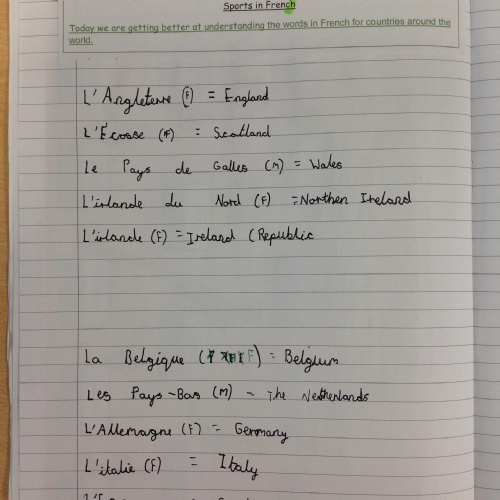 Sports in French
Today we are getting better at understanding the words in French for countries around the
world.
L'Angleterre (F) = England
L'Écosse (F) = Scotland
Le Pays de Galles (M) = Wales
L'irlande du Nord (F) = Northen Ireland
L'irlande (F) = Ireland (Republic
La Belgique (F) = Belgium
Les Pays-Bas (M) = The Netherlands
L'Allemagne (F) = Germany
L'italie (F) = Italy